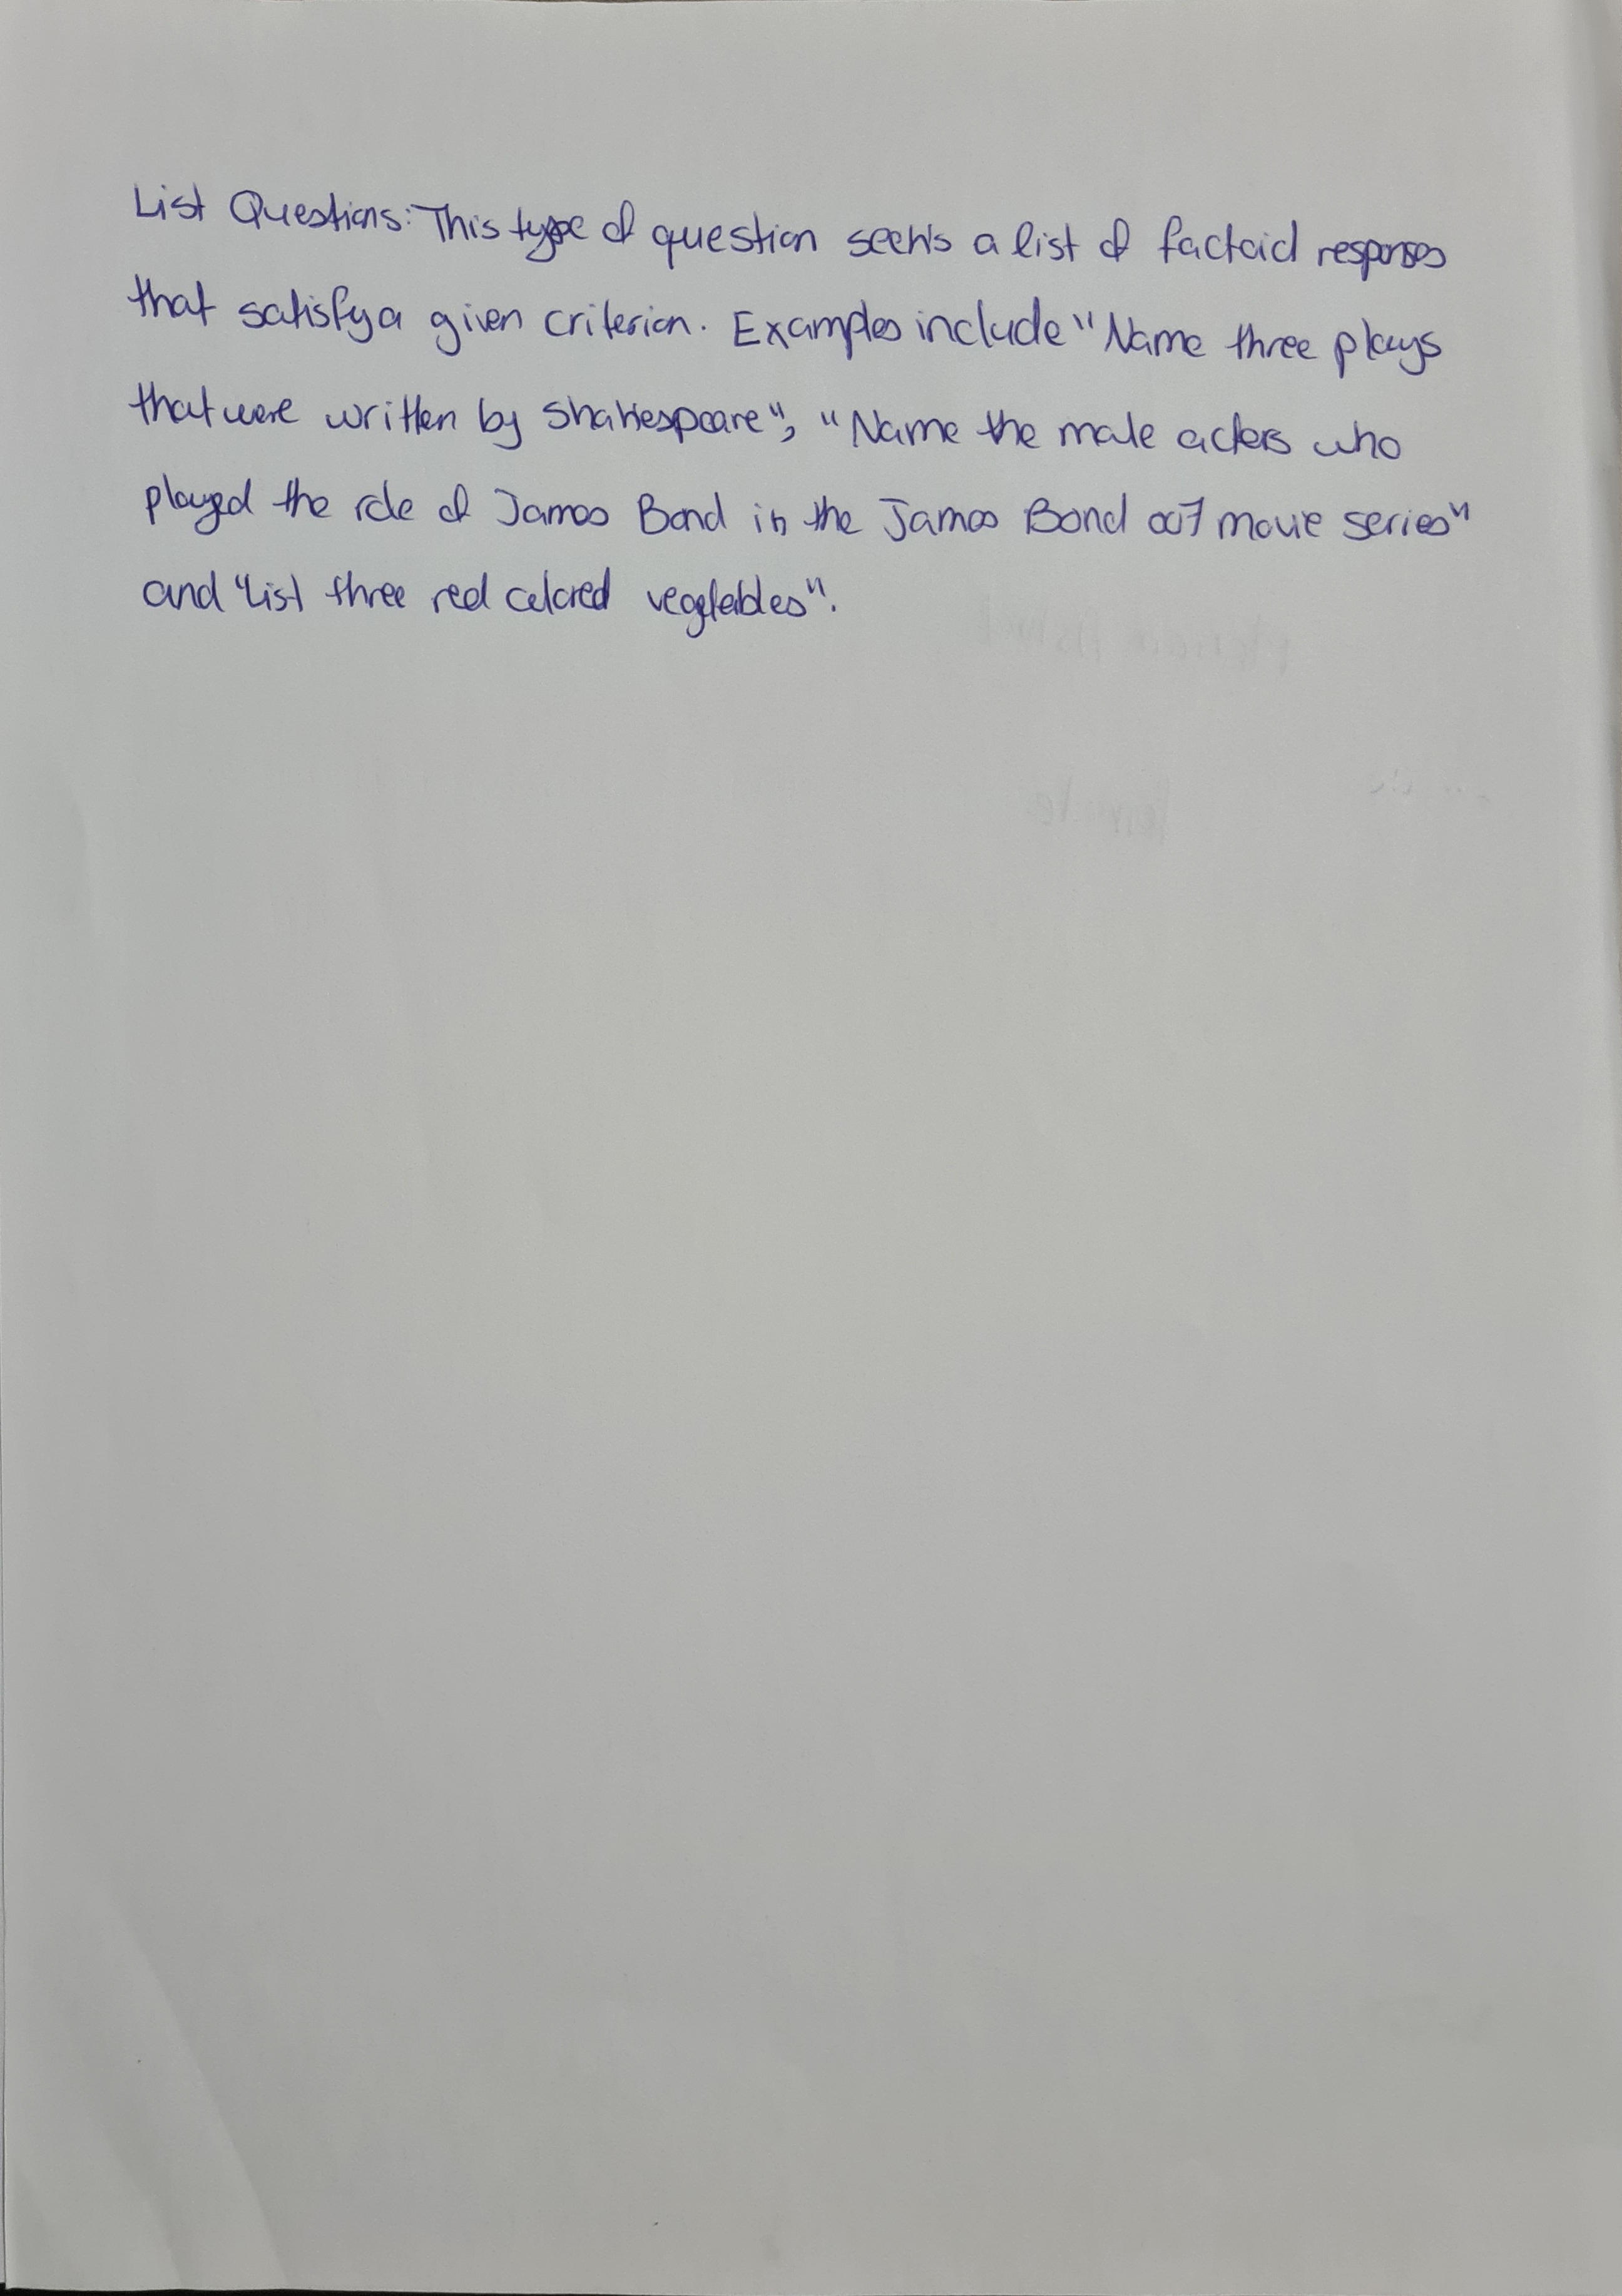 List Questions: This type of question seeks a list of factoid responses
that satisfy a given criterion. Examples include "Name three plays
that were written by Shakespeare", "Name the male actors who
played the role of James Bond in the James Bond 007 movie series"
and "List three red colored vegetables".